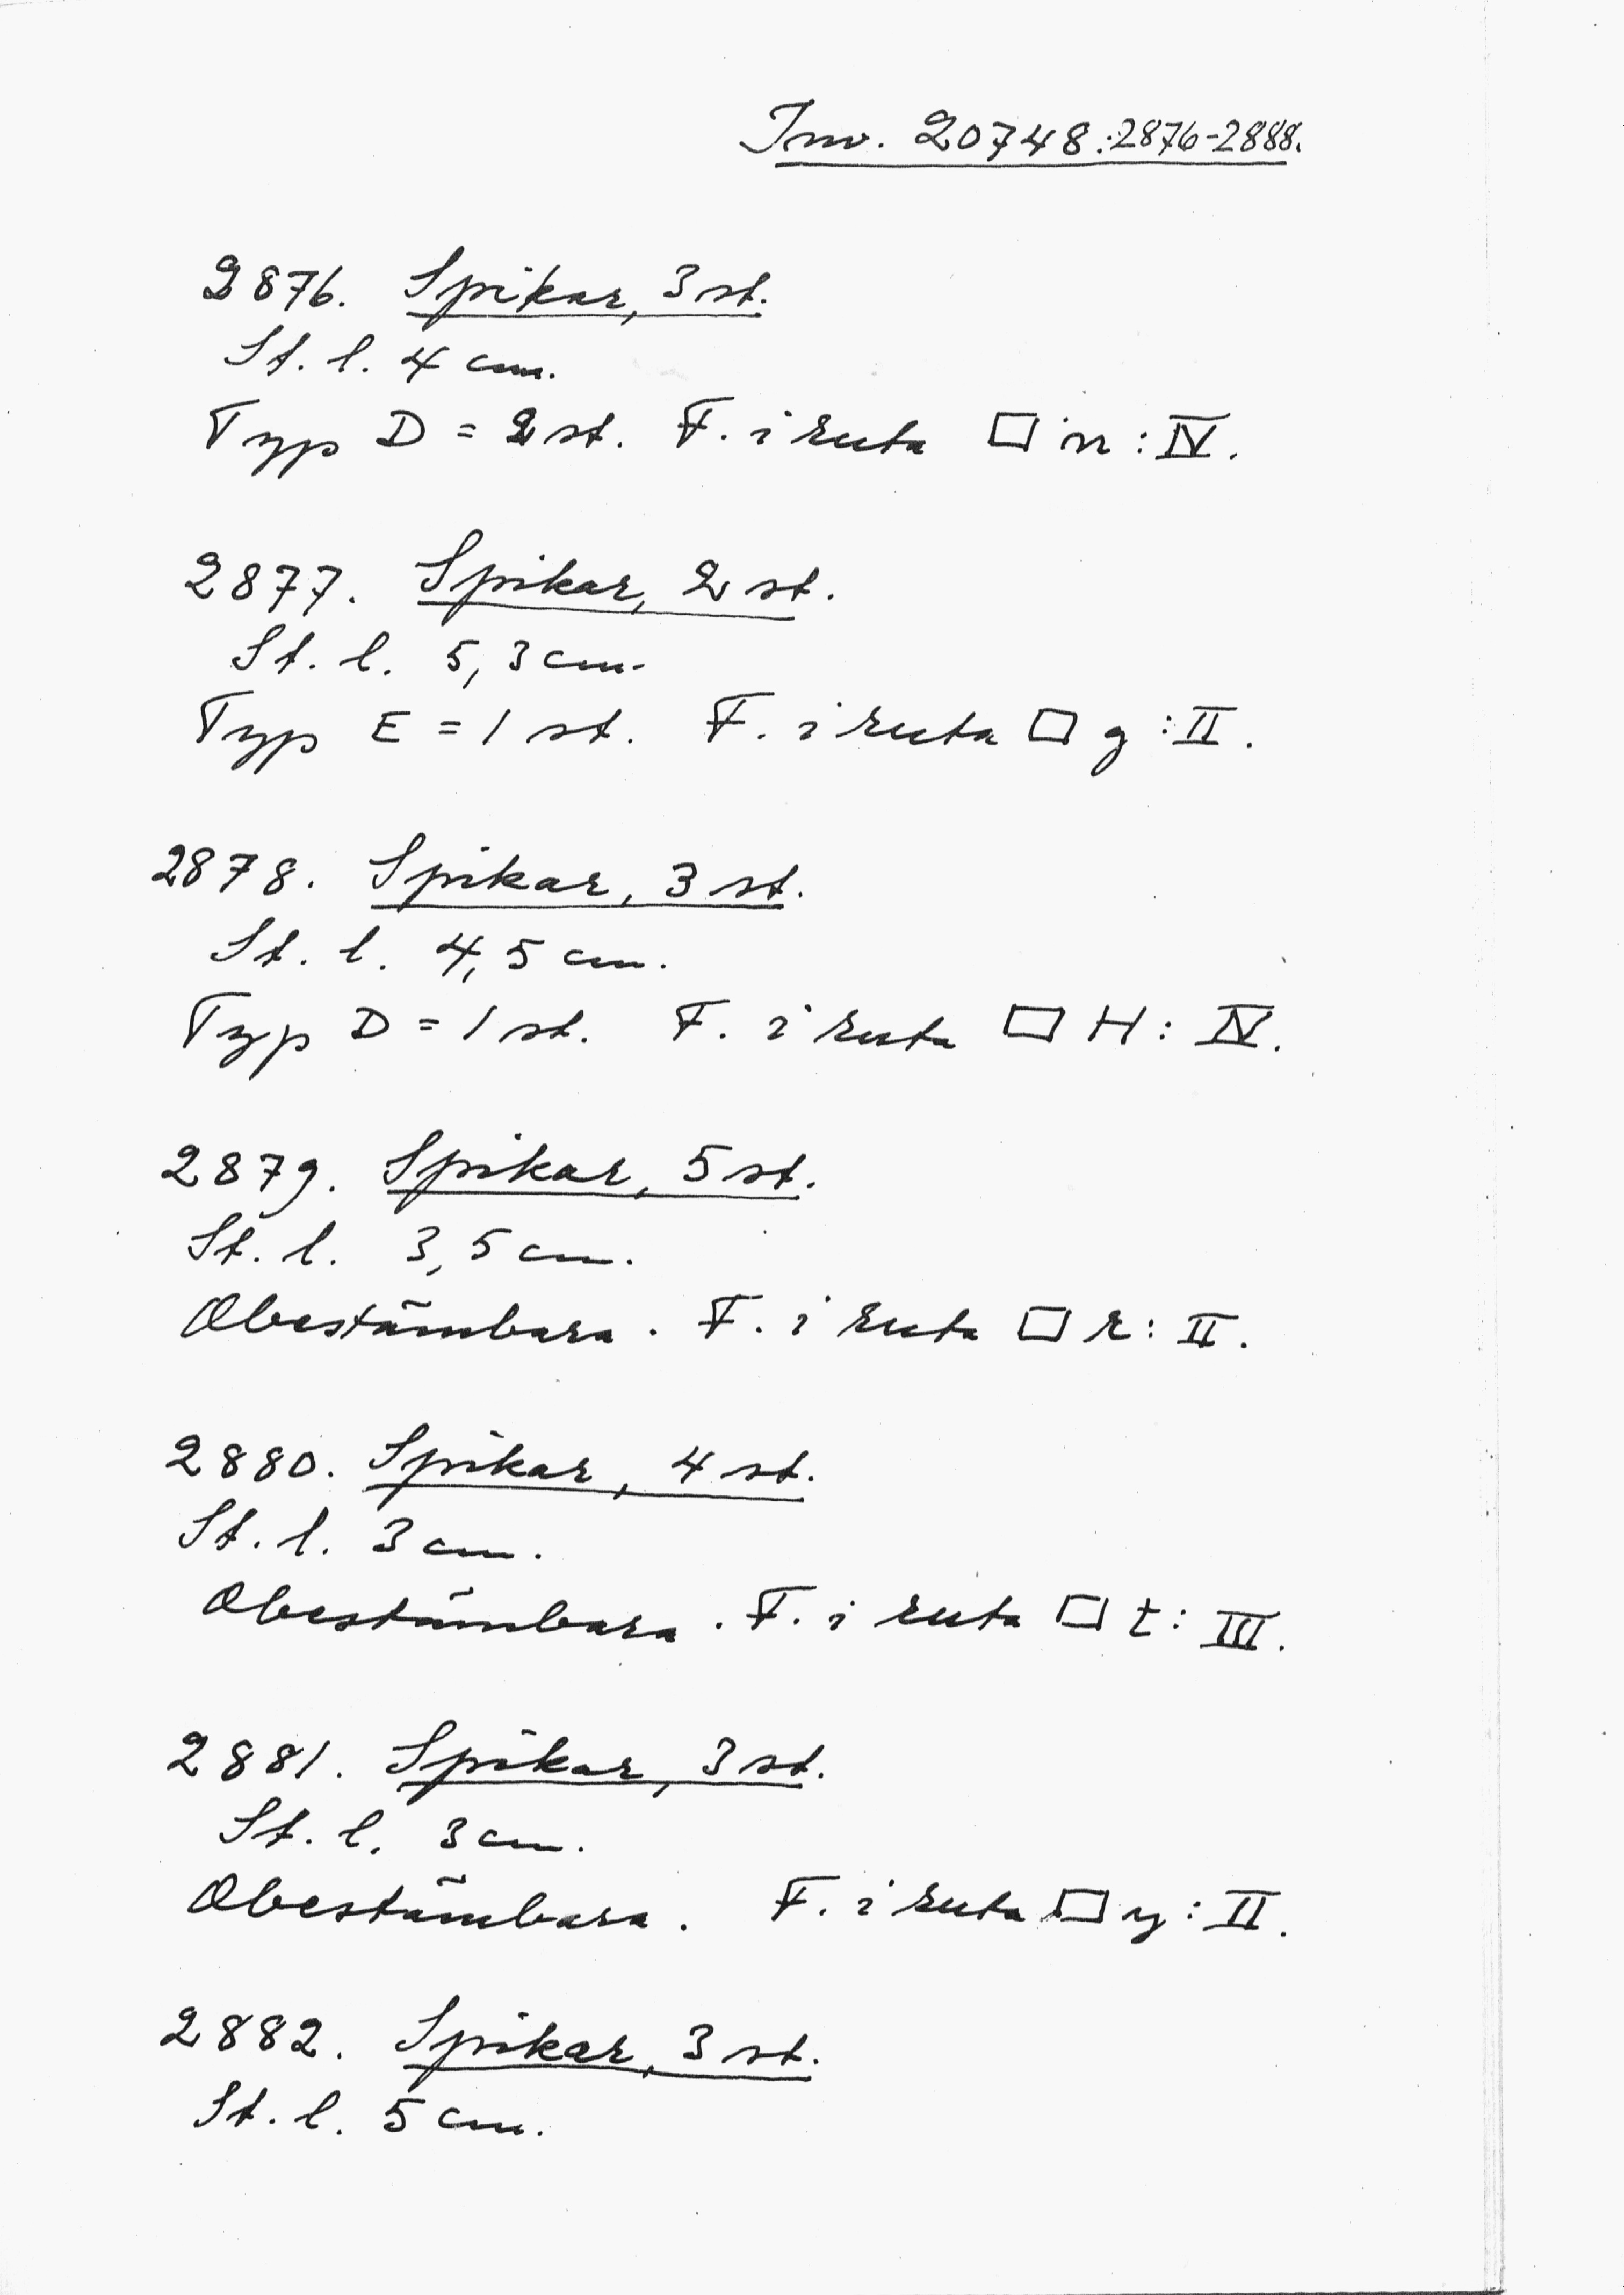 Inv. 20748:2876-2888.
2876. Spikar, 3 st.
St. l. 4 cm.
Typ D = 2 st. F. i ruta □ n : IV.
2877. Spikar, 2 st.
St. l. 5,3 cm.
Typ E = 1 st. F. i ruta □ g : II.
2878. Spikar, 3 st.
St. l. 4,5 cm.
Typ D = 1 st. F. i ruta □ H : IV.
2879. Spikar, 5 st.
St. l. 3,5 cm.
Obestämbara. F. i ruta □ r : II.
2880. Spikar, 4 st.
St. l. 3 cm.
Obestämbara. F. i ruta □ t : III.
2881. Spikar, 3 st.
St. l. 3 cm.
Obestämbara. F. i ruta □ y : II.
2882. Spikar, 3 st.
St. l. 5 cm.